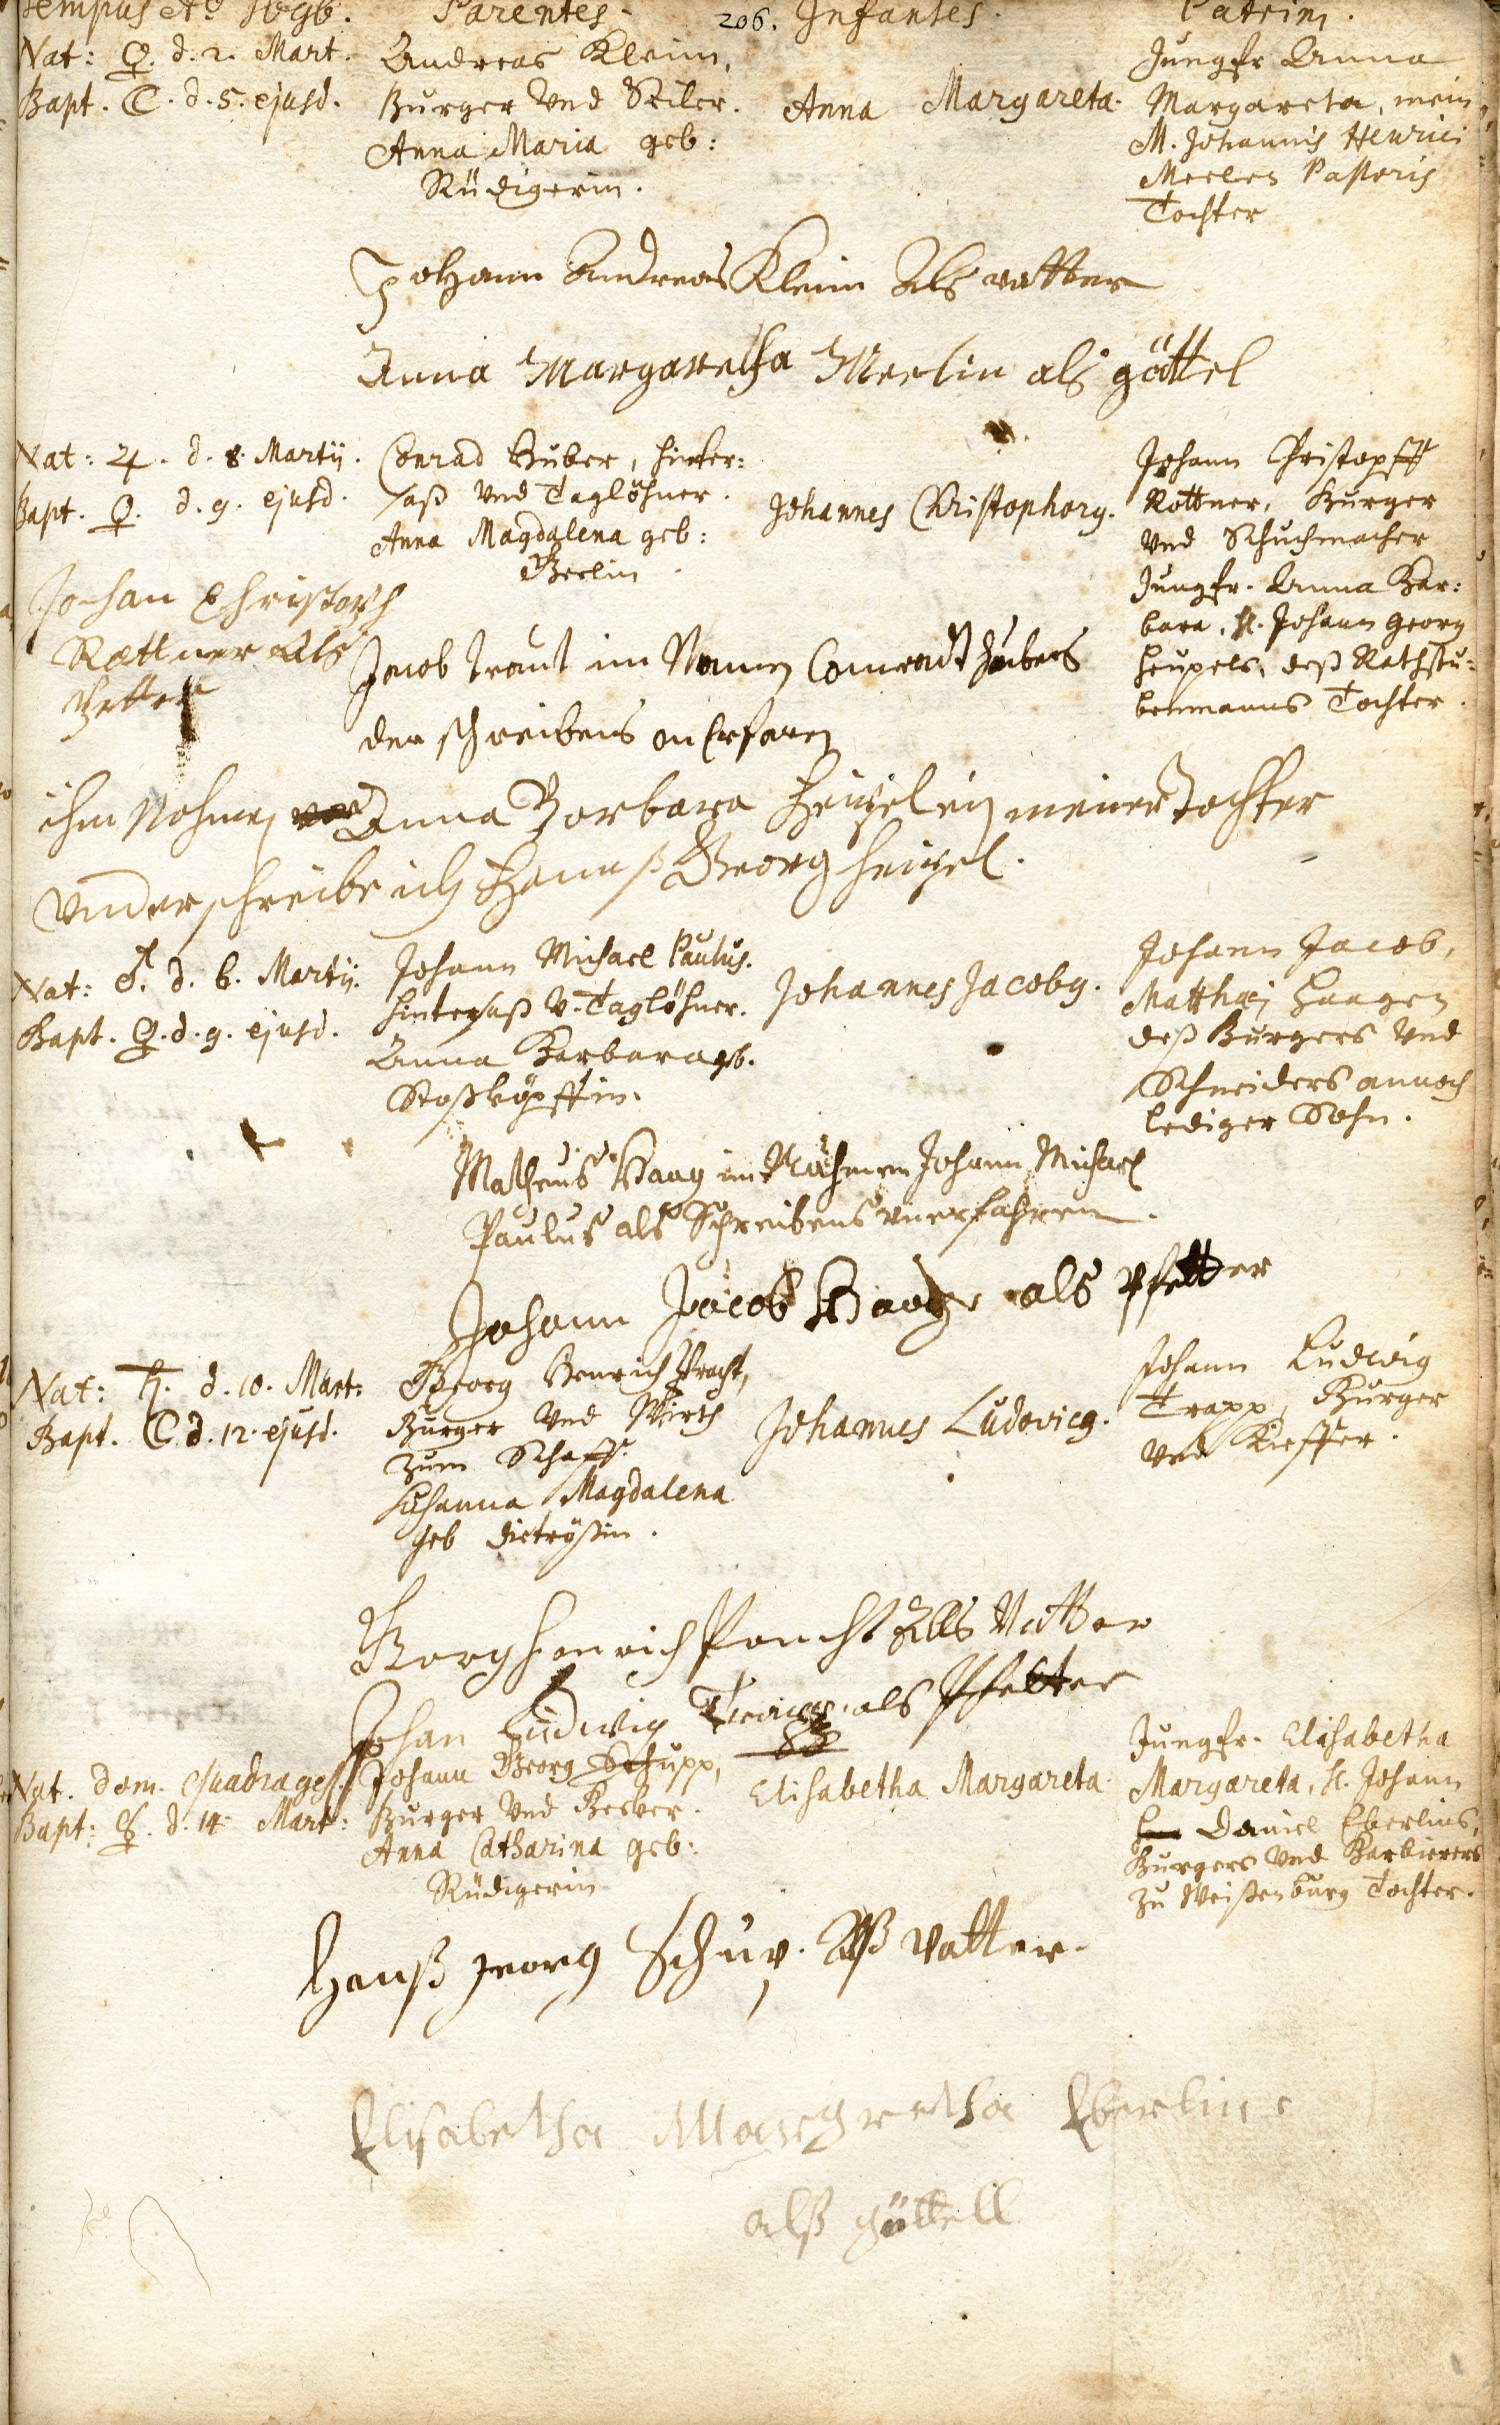 Tempus Ao 1696. Parentes. 206. Infantes. Patrini.
Nat: ♀. d. 2. Mart.
Bapt. ☾. d. 5. ejusd.
Andreas Kleim,
Burger Vnd Seiler.
Anna Maria geb:
Rüdigerin.
Anna Margareta.
Jungfr Anna
Margareta, mein
M. Johannis Henrici
Meelen Pastoris
Tochter
Johann Andreas Kleim Als vatter
Anna Margaretha Meelin als göttel
Nat: ♃. d. 8. Martij.
Bapt. ♀. d. 9. ejusd.
Conrad Huber, hinter:
saß Vnd Taglöhner.
Anna Magdalena geb:
Beelin.
Johannes Christophorg.
Johann Christopff
Rottner, Burger
Vnd Schuchmacher
Jungfr. Anna Bar:
bara, H. Johann Georg
Heupels, deß Rathstu:
benmanns Tochter.
Johan Christoph
Rottner als
Petter
Jacob Traut im Namen Conradt Hubers
der schreibens on Erfaren
ihm Nohmen Anna Borbara Heupelin meiner Tochter
Vnderschreibe ich Hannß Georg Heupel.
Nat: ♂. d. 6. Martij.
Bapt. ♀. d. 9. ejusd.
Johann Michael Paulus.
hintersaß V. Taglöhner.
Anna Barbara geb.
Stoßköpffin.
Johannes Jacobg.
Johann Jacob,
Matthaej Haagen
deß Burgers Vnd
Schneiders annoch
lediger Sohn.
Matheus Haag im Nahmen Johann Michael
Paulus als Schreibens vnerfahren.
Johann Jacob Haag als Pfetter
Nat: ♄. d. 10. Mart:
Bapt. ☾. d. 12. ejusd.
Georg Henrich Pracht,
Burger Vnd Wirth
zum Schaff.
Susanna Magdalena
geb Dietrÿßin.
Johannes Ludovicg.
Johann Ludwig
Trapp, Burger
Vnd Kieffer.
Georg Henrich Pracht Alls Vatter
Johan Ludwig als Pfetter
Nat. Dom. Quadrages.
Bapt: ☿. d. 14. Mart:
Johann Georg Schupp,
Burger Vnd Becker.
Anna Catharina geb:
Rüdigerin
Elisabetha Margareta.
Jungfr. Elisabetha
Margareta, H. Johann
Daniel Eberlins,
Burgers Vnd Barbierers
zu Weissenburg Tochter.
Hanß Jeorg Schup. Alß Vatter.
Elisabetha Maregretha Eberline
alß göttell